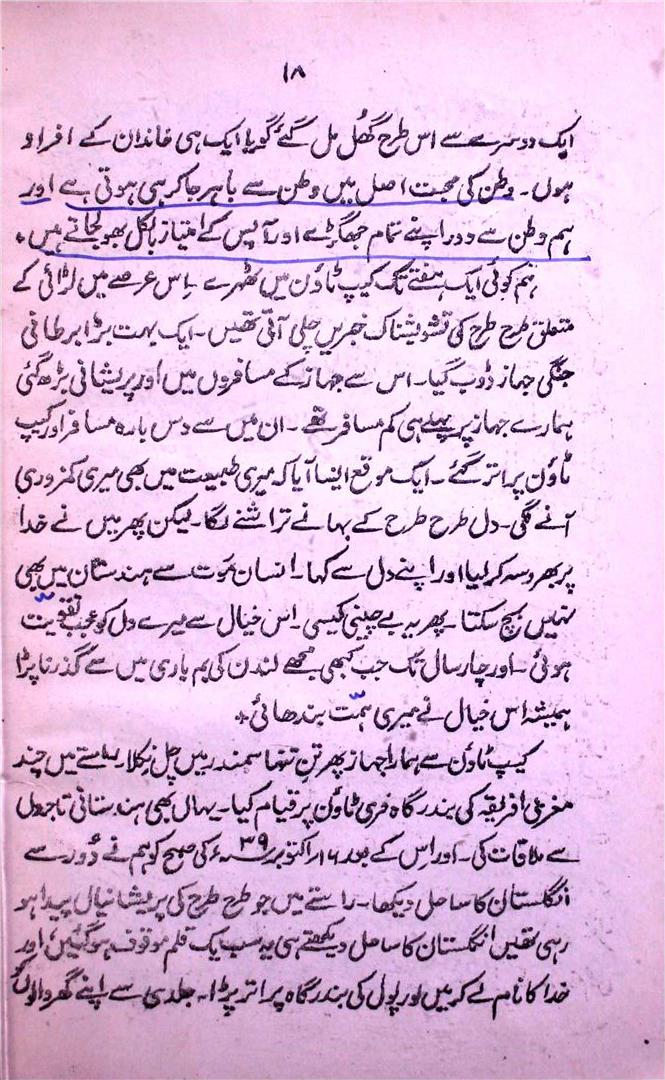 ۱۸
ایک دوسرے سے اس طرح گھُل مل گئے گویا ایک ہی خاندان کے افراد
ہوں۔ وطن کی محبت اصل میں وطن سے باہر جا کر ہی ہوتی ہے اور
ہم وطن سے دور اپنے تمام جھگڑے اور آپس کے امتیاز بالکل بھول جاتے ہیں۔
ہم کوئی ایک ہفتے تک کیپ ٹاؤن میں ٹھہرے۔ اِس عرصے میں لڑائی کے
متعلق طرح طرح کی تشویشناک خبریں چلی آتی تھیں۔ ایک بہت بڑا برطانی
جنگی جہاز ڈوب گیا۔ اس سے جہاز کے مسافروں میں اور پریشانی بڑھ گئی
ہمارے جہاز پر پہلے ہی کم مسافر تھے۔ ان میں سے دس بارہ مسافر اور کیپ
ٹاؤن پر اتر گئے۔ ایک موقع ایسا آیا کہ میری طبیعت میں بھی میری کمزوری
آنے لگی۔ دل طرح طرح کے بہانے تراشنے لگا۔ لیکن پھر میں نے خدا
پر بھروسہ کر لیا اور اپنے دل سے کہا۔ انسان موت سے ہندستان میں بھی
نہیں بچ سکتا۔ پھر یہ بے چینی کیسی۔ اس خیال سے میرے دل کو عجب تقویّت
ہوئی۔ اور چار سال تک جب کبھی مجھے لندن کی بم باری میں سے گذرنا پڑا
ہمیشہ اس خیال نے میری ہمّت بندھائی۔
کیپ ٹاؤن سے ہمارا جہاز پھر تنِ تنہا سمندر میں چل نکلا۔ راستے میں چند
مغربی افریقہ کی بندرگاہ فری ٹاؤن پر قیام کیا۔ یہاں بھی ہندستانی تاجروں
سے ملاقات کی۔ اور اِس کے بعد ۱۶ اکتوبر ۳۹ء کی صبح کو ہم نے دُور سے
انگلستان کا ساحل دیکھا۔ راستے میں جو طرح طرح کی پریشانیاں پیدا ہو
رہی تھیں انگلستان کا ساحل دیکھتے ہی یہ سب یک قلم موقوف ہو گئیں، اور
خدا کا نام لے کر میں لورپول کی بندرگاہ پر اتر پڑا۔ جلدی سے اپنے گھر والوں کو